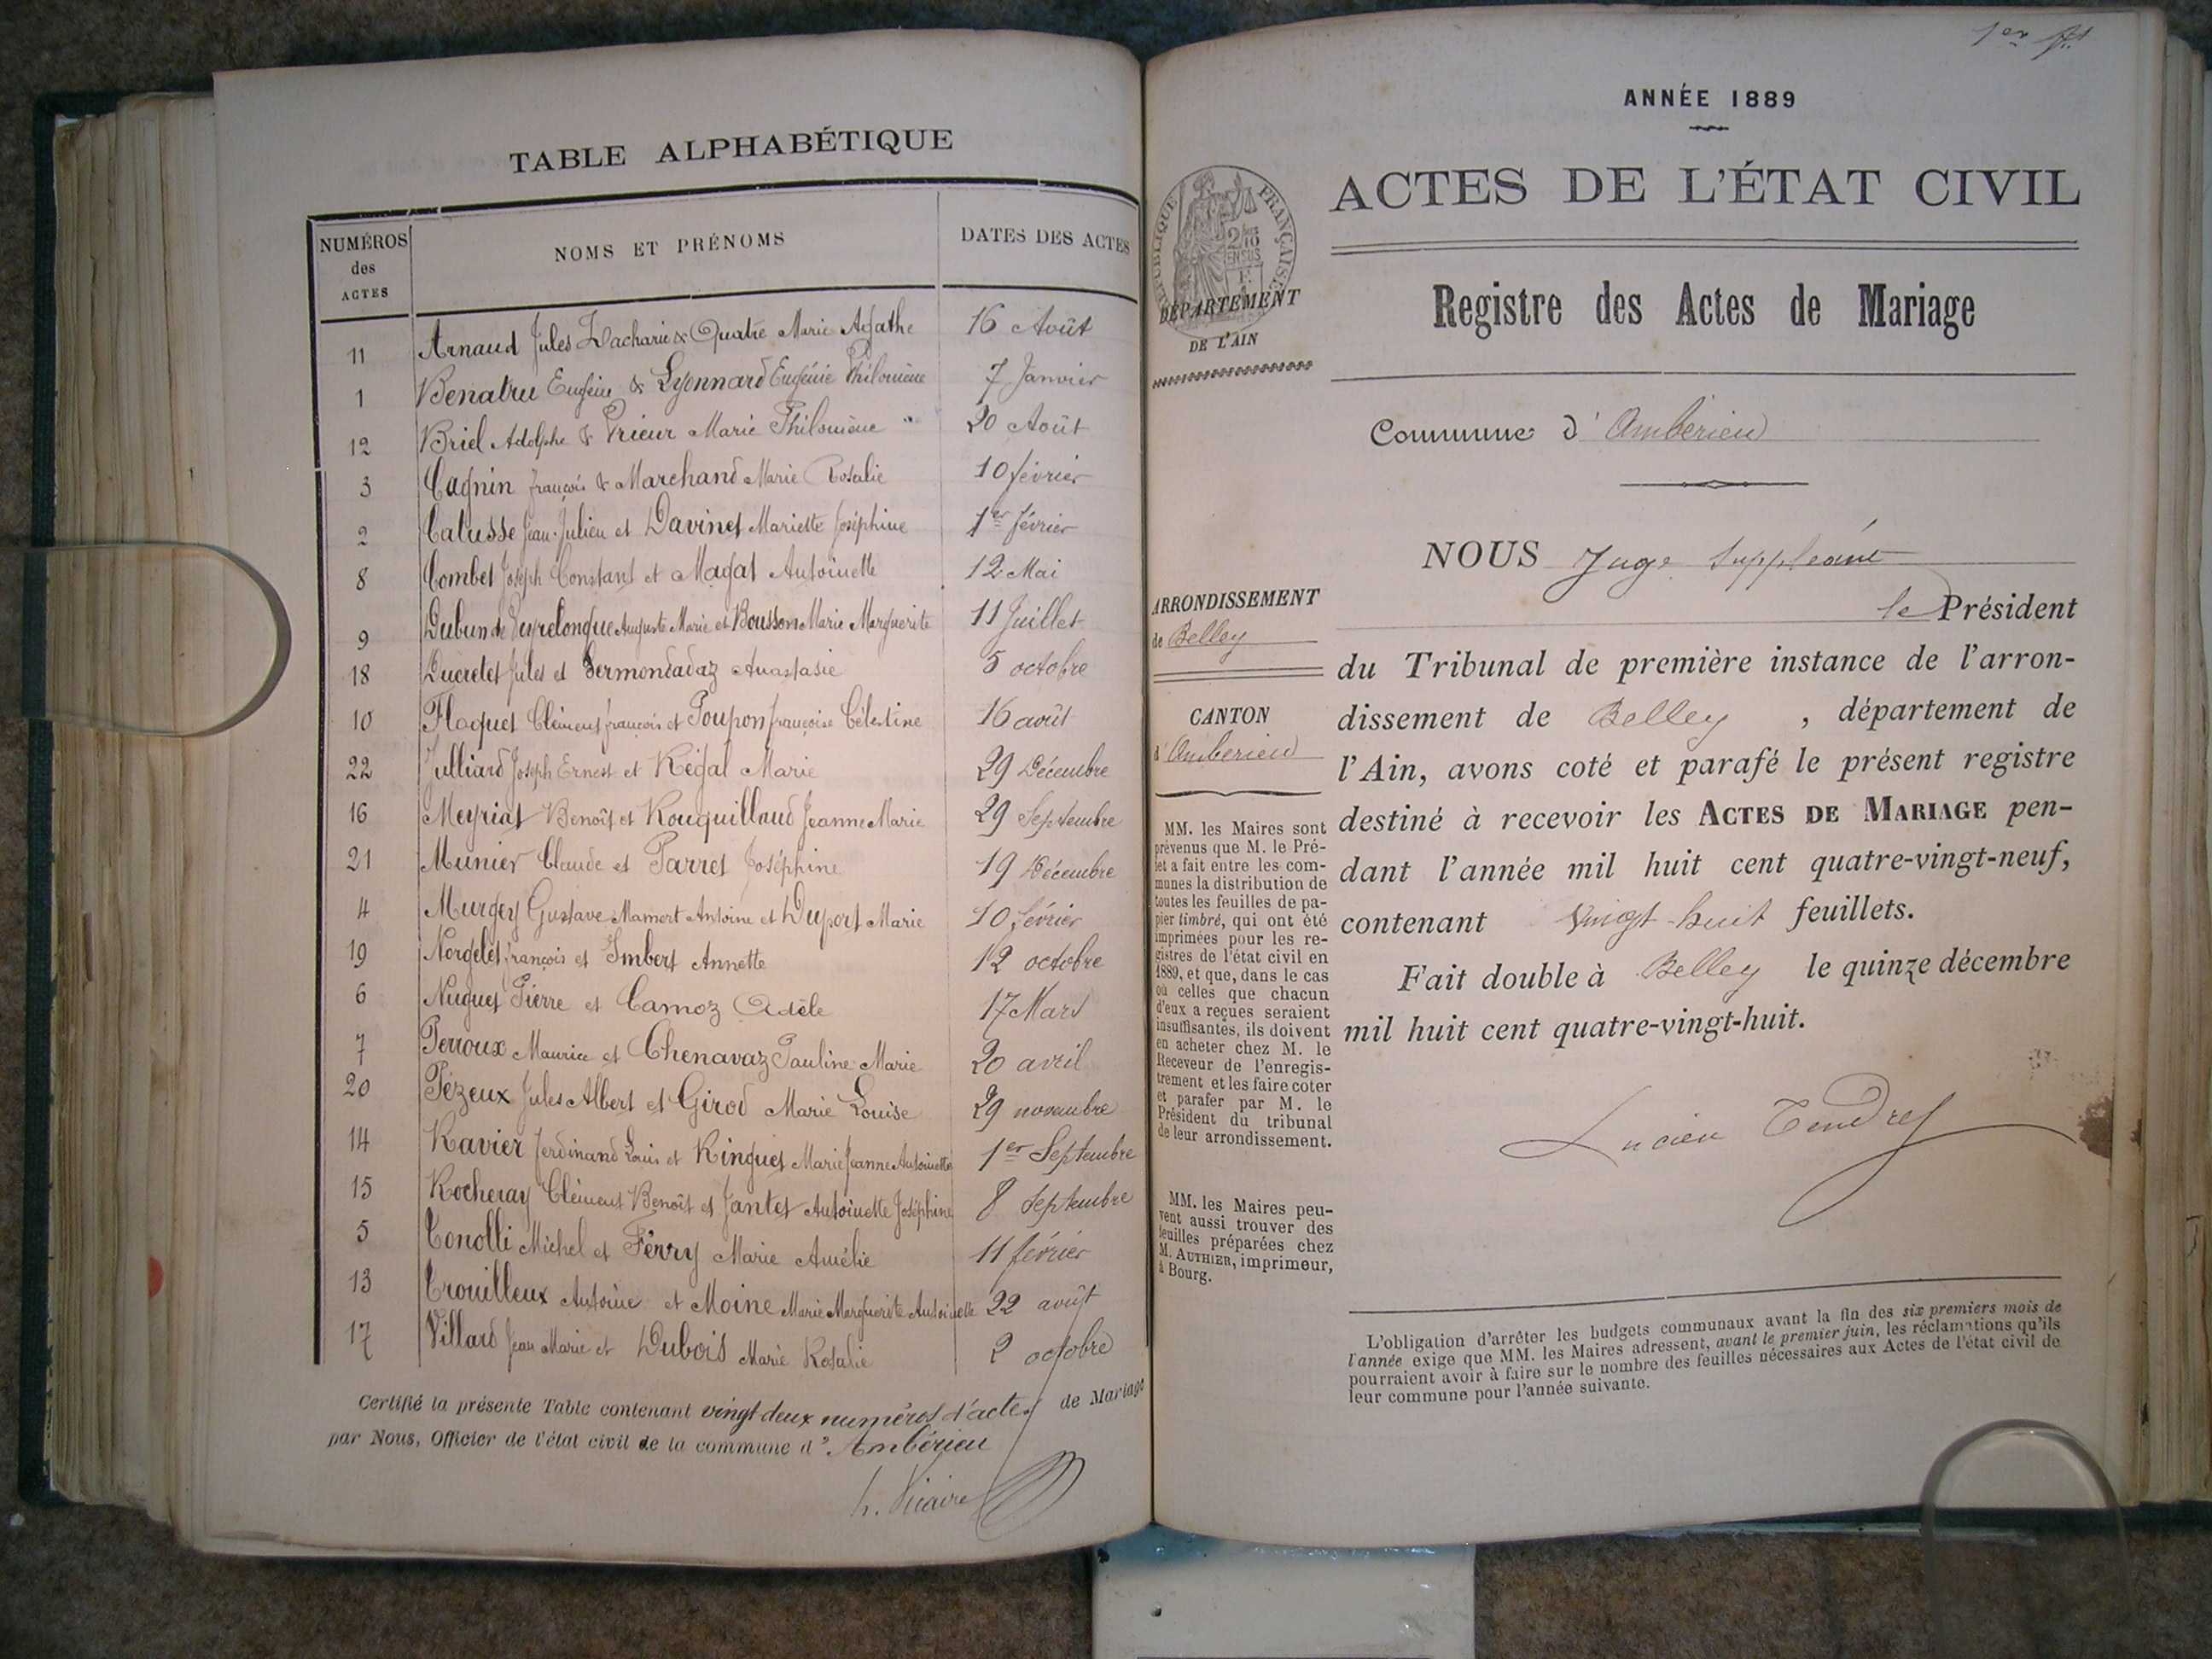 TABLE ALPHABÉTIQUE
NUMÉROS des ACTES NOMS ET PRÉNOMS DATES DES ACTES
11 Arnaud Jules Zacharie & Quatre Marie Agathe 16 Août
1 Benatru Eugène & Lyonnard Eugénie Philomène 7 Janvier
12 Briel Adolphe & Prieur Marie Philomène 20 Août
3 Cagnin François & Marchand Marie Rosalie 10 février
2 Calusse Jean-Julien et Davinet Mariette Joséphine 1er février
8 Combet Joseph Constant et Magat Antoinette 12 Mai
9 Dubun de Auguste Marie et Bousson Marie Marguerite 11 Juillet
18 Ducretet Jules et Sermondadaz Anastasie 5 octobre
10 Flaquet Clément françois et Poupon françoise Célestine 16 août
22 Julliard Joseph Ernest et Régal Marie 29 Décembre
16 Meyriat Benoît et Rouquillaud Jeanne Marie 29 Septembre
21 Munier Claude et Parret Joséphine 19 Décembre
4 Murgey Gustave Mamert Antoine et Duport Marie 10 février
19 Norgelet françois et Imbert Annette 12 octobre
6 Nuguet Pierre et Camoz Adèle 17 Mars
7 Perroux Maurice et Chenavaz Pauline Marie 20 avril
20 Pézeux Jules Albert et Girod Marie Louise 29 novembre
14 Ravier ferdinand Louis et Ringuet Marie Jeanne Antoinette 1er Septembre
15 Rocheray Clément Benoît et Jantet Antoinette Joséphine 8 Septembre
5 Tonolli Michel et Férry Marie Amélie 11 février
13 Trouilleux Antoine et Moine Marie Marguerite Antoinette 22 août
17 Villard Jean Marie et Dubois Marie Rosalie 2 octobre
Certifié la présente Table contenant vingt-deux numéros d'actes de Mariage
par Nous, Officier de l'état civil de la commune d'Ambérieu
h. Vicaire
1er
ANNÉE 1889
ACTES DE L'ÉTAT CIVIL
Registre des Actes de Mariage
RÉPUBLIQUE FRANÇAISE
DÉPARTEMENT
DE L'AIN
Commune d'Ambérieu
ARRONDISSEMENT
de Belley
CANTON
d'Ambérieu
MM. les Maires sont
prévenus que M. le Pré-
fet a fait entre les com-
munes la distribution de
toutes les feuilles de pa-
pier timbré, qui ont été
imprimées pour les re-
gistres de l'état civil en
1889, et que, dans le cas
où celles que chacun
d'eux a reçues seraient
insuffisantes, ils doivent
en acheter chez M. le
Receveur de l'enregis-
trement et les faire coter
et parafer par M. le
Président du tribunal
de leur arrondissement.
MM. les Maires peu-
vent aussi trouver des
feuilles préparées chez
M. AUTHIER, imprimeur,
à Bourg.
NOUS Juge Suppléant
le Président
du Tribunal de première instance de l'arron-
dissement de Belley, département de
l'Ain, avons coté et parafé le présent registre
destiné à recevoir les ACTES DE MARIAGE pen-
dant l'année mil huit cent quatre-vingt-neuf,
contenant Vingt-huit feuillets.
Fait double à Belley le quinze décembre
mil huit cent quatre-vingt-huit.
Lucien Tendret
L'obligation d'arrêter les budgets communaux avant la fin des six premiers mois de
l'année exige que MM. les Maires adressent, avant le premier juin, les réclamations qu'ils
pourraient avoir à faire sur le nombre des feuilles nécessaires aux Actes de l'état civil de
leur commune pour l'année suivante.